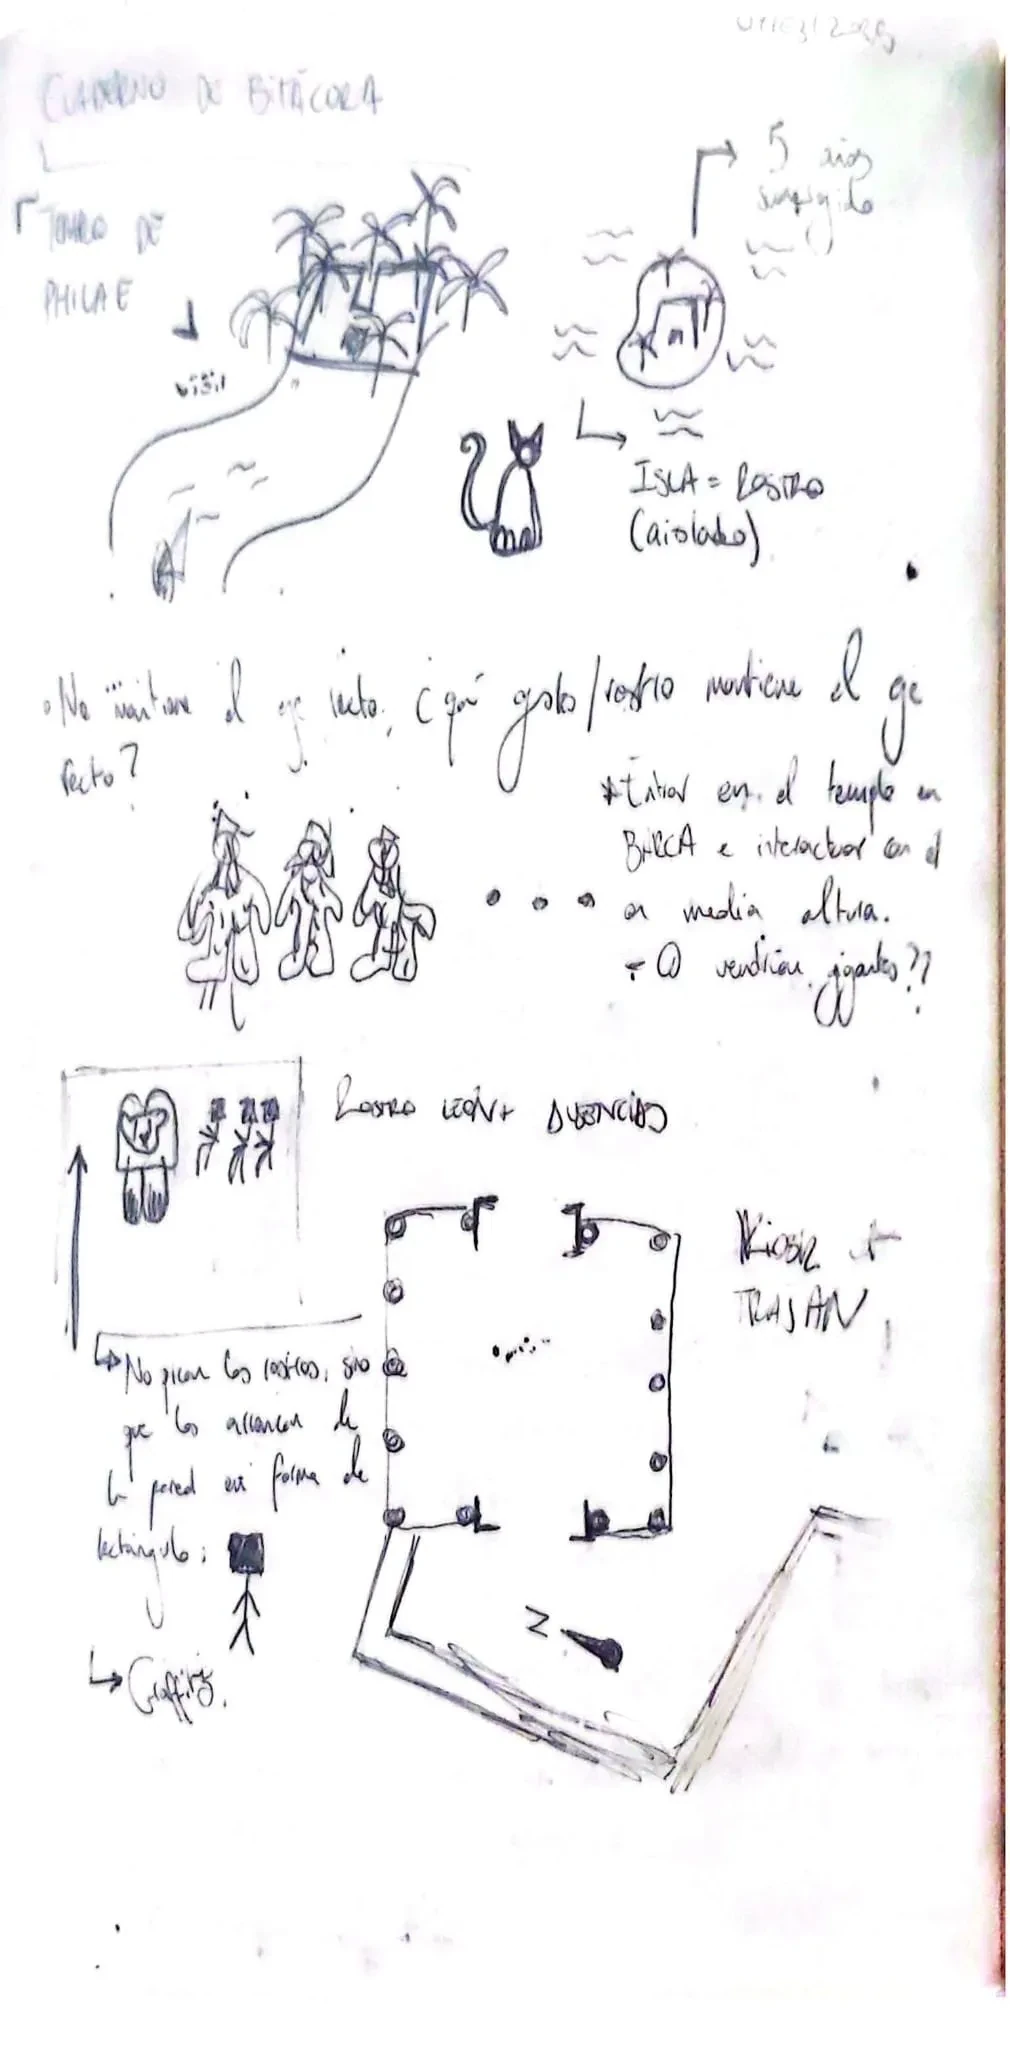 CUADERNO DE BITÁCORA
TEMPLO DE
PHILAE
5 años
sumergido
ISLA = ROSTRO
(aislado)
No mantiene el eje recto. ¿qué gesto/rostro mantiene el eje
recto?
* Entrar en el templo en
BARCA e interactuar con él
a media altura.
- O vendrían gigantes??
ROSTRO LEÓN + AUSENCIAS
KIOSK +
TRAJAN
No pican los rostros, sino
que los arrancan de
la pared en forma de
rectángulo:
N
Graffitis.